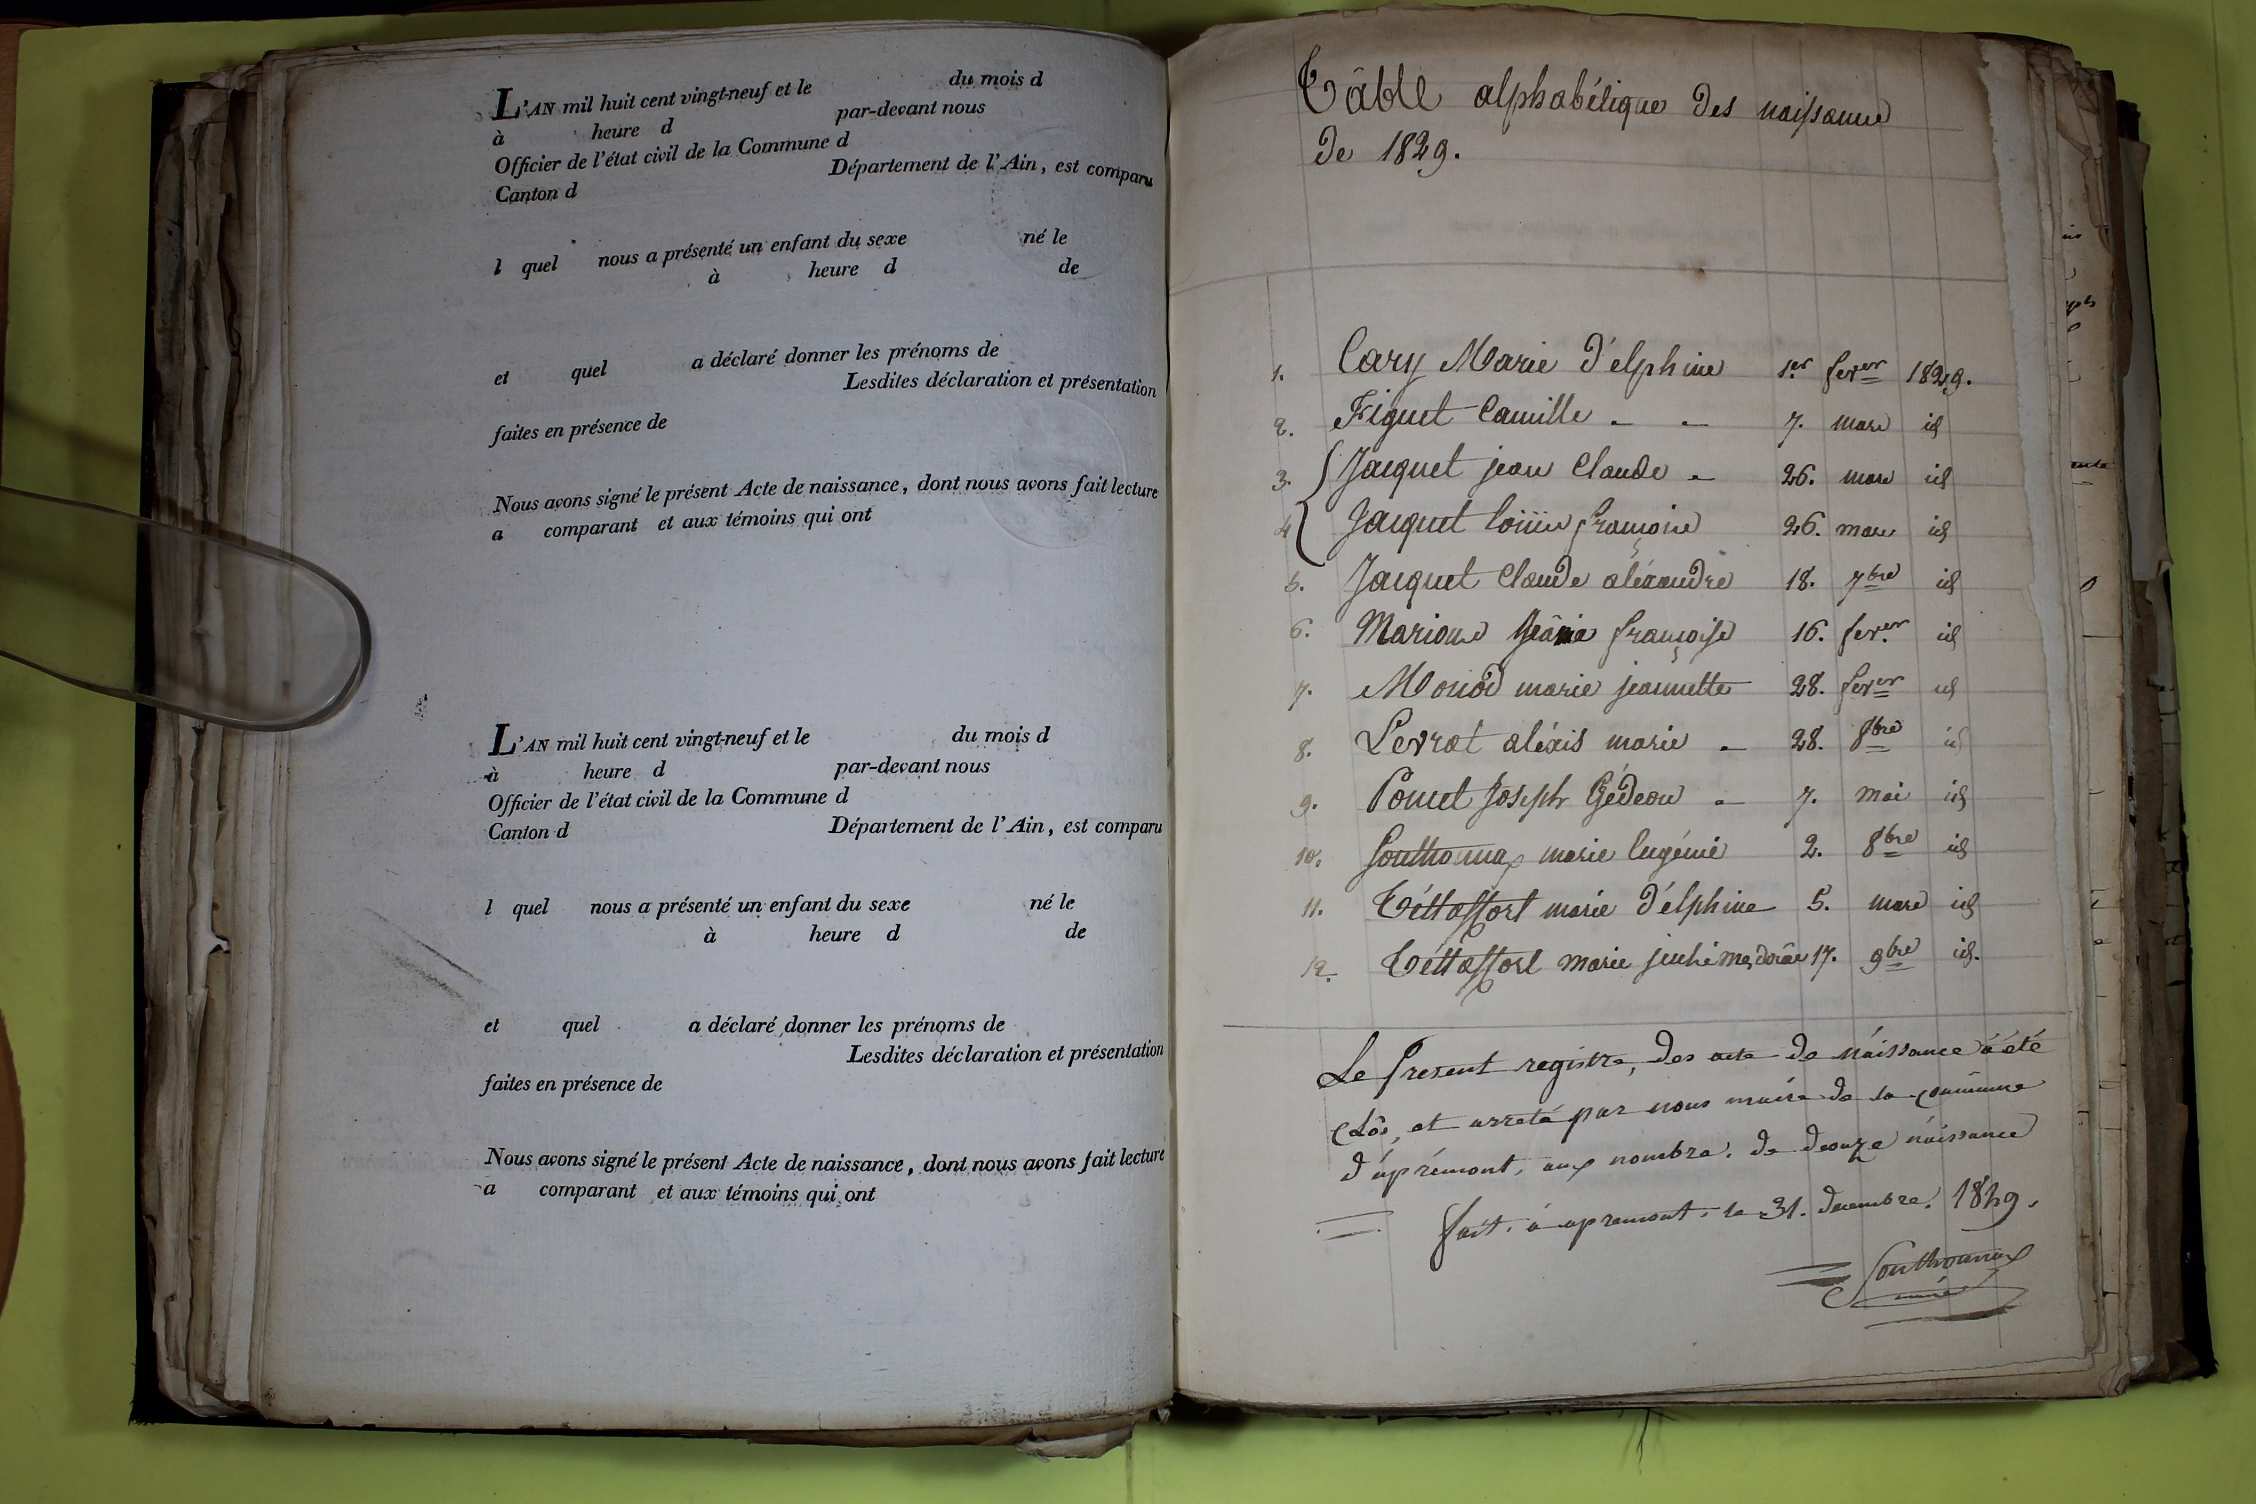 L'AN mil huit cent vingt-neuf et le du mois d
à heure d par-devant nous
Officier de l'état civil de la Commune d
Canton d Département de l'Ain, est comparu
l quel nous a présenté un enfant du sexe né le
à heure d de
et quel a déclaré donner les prénoms de
Lesdites déclaration et présentation
faites en présence de
Nous avons signé le présent Acte de naissance, dont nous avons fait lecture
a comparant et aux témoins qui ont
L'AN mil huit cent vingt-neuf et le du mois d
à heure d par-devant nous
Officier de l'état civil de la Commune d
Canton d Département de l'Ain, est comparu
l quel nous a présenté un enfant du sexe né le
à heure d de
et quel a déclaré donner les prénoms de
Lesdites déclaration et présentation
faites en présence de
Nous avons signé le présent Acte de naissance, dont nous avons fait lecture
a comparant et aux témoins qui ont
Tâble alphabétique des naissance
de 1829.
1. Cary Marie d'elphine 1er fever 1829.
2. Figuet Camille - - 7. mars id
3. Jacquet jean Claude - 26. mars id
4 Jacquet françoise 26. mars id
5. Jacquet Claude aléxandre 18. 7bre id
6. françoise 16. fever id
7. Monod marie jeannette 28. fever id
8. Levrat aléxis marie - 28. 8bre id
9. Poncet Joseph Gédeon - 7. mai id
10. Gouthonnax marie Eugénie 2. 8bre id
11. Téttaffort marie d'élphine 5. mars id
12. Téttaffort marie 17. 9bre id.
Le Present registre, des acte de náissance á été
Clos, et arreté par nous maire de la commune
d'áprémont, aux nombre. de douze náissance
fait. á apremont. le 31. decembre. 1829.
Gouthonnax
maire